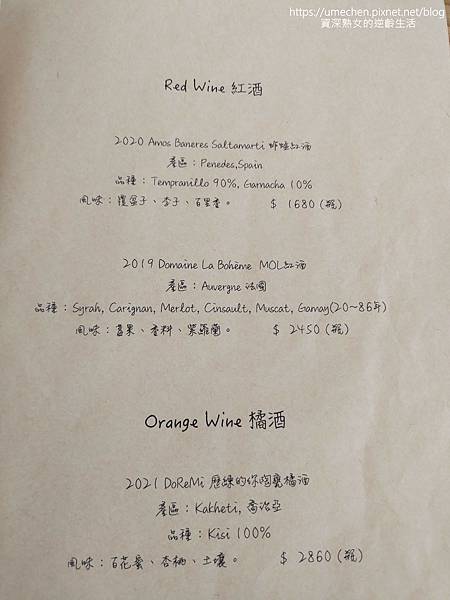 https://umechen.pixnet.net/blog
資深熟女的逆齡生活
Red Wine 紅酒
2020 Amos Baneres Saltamarti 蚱蜢紅酒
產區：Penedes,Spain
品種：Tempranillo 90%, Garnacha 10%
風味：覆盆子、李子、百里香。 $ 1680 (瓶)
2019 Domaine La Bohème MOL紅酒
產區：Auvergne 法國
品種：Syrah, Carignan, Merlot, Cinsault, Muscat, Gamay(20~86年)
風味：莓果、香料、紫羅蘭。 $ 2450 (瓶)
Orange Wine 橘酒
2021 DoReMi 歷練的你陶甕橘酒
產區：Kakheti, 喬治亞
品種：Kisi 100%
風味：百花蜜、杏桃、土壤。 $ 2860 (瓶)